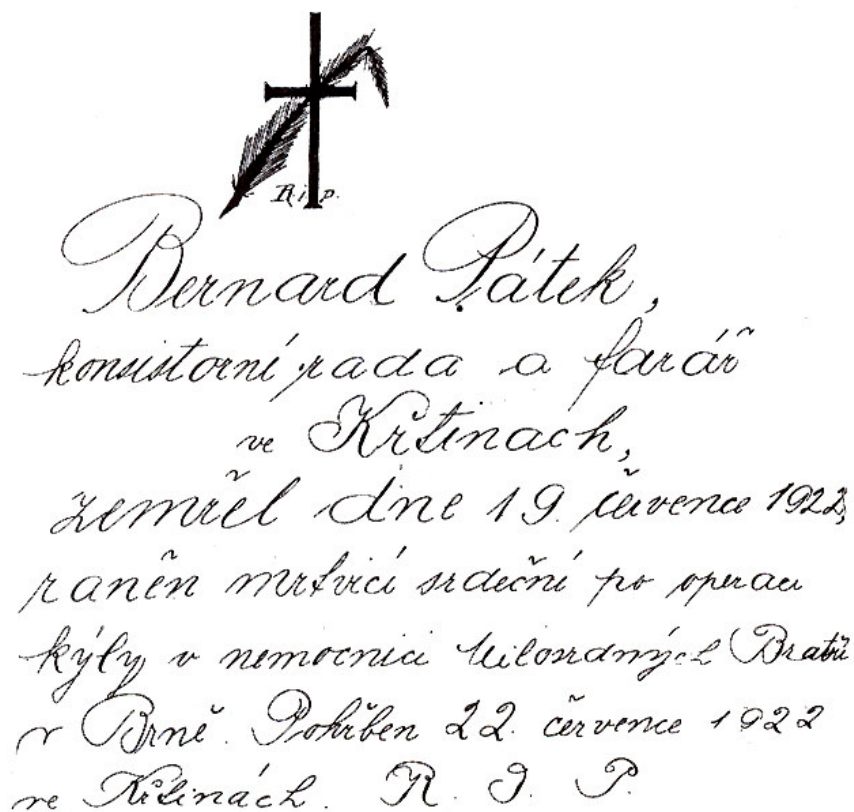 R.i.p.
Bernard Pátek,
konsistorní rada a farář
ve Křtinach,
zemřel dne 19. července 1922,
raněn mrtvicí srdeční po operaci
kýly v nemocnici Milosrdných Bratří
v Brně. Pohřben 22. července 1922
ve Křtinách. R. I. P.